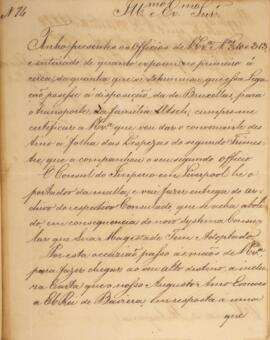 N 74
Ill.mo Ex.mo Snr.
Tenho presentes os Officios de V.Ex.ª N.º 310 e 313
e inteirado de quanto expoem no primeiro á
cerca da quantia que se determina, que essa Lega-
ção posesse á disposição, da de Bruxellas, para
o transporte da familia , cumpre-me
certificar a V.Ex.ª que vou dar o conveniente des-
tino a folha das Despezas do segundo Trimes-
tre, que acompanhou o seu segundo officio.
O Consul do Imperio em Liverpool he o
portador da malla, e vai fazer entrega do ar-
chivo do respectivo Consulado que se acha aboli-
do, em consequencia do novo systema Consu-
lar que Sua Magestade Tem Adoptado.
Por esta occazião passo as mãos de V.Ex.ª
para fazer chegar ao seu alto destino, a inclu-
za Carta que o nosso Augusto Amo Escreve
a ElRei de Baviera em resposta a uma
que